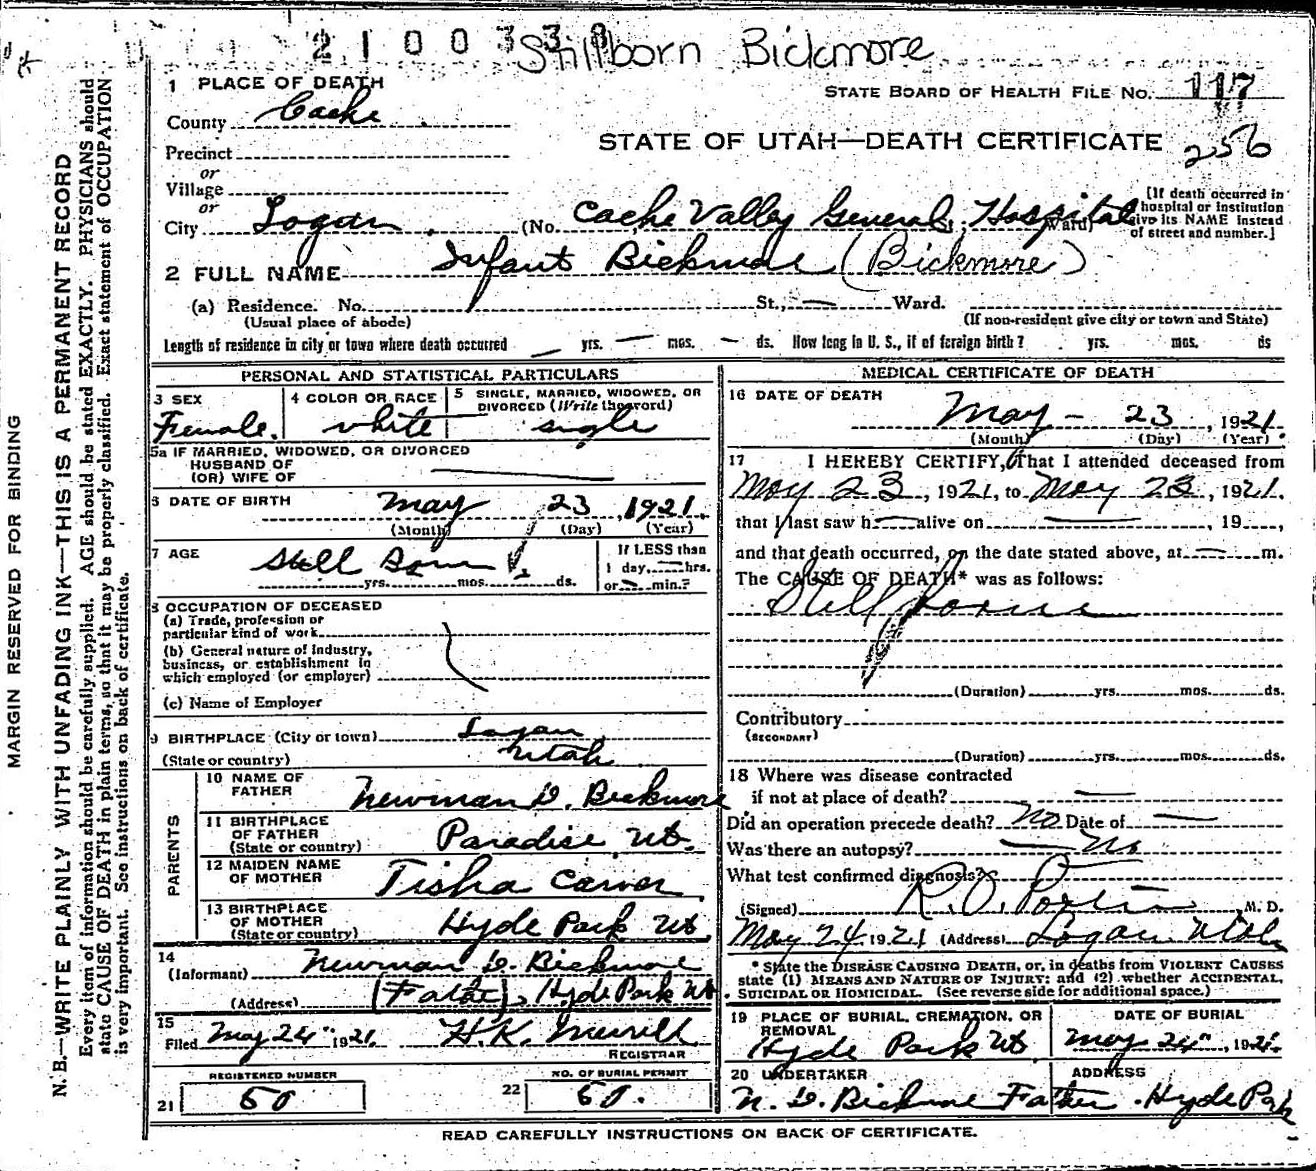 2100338
Stillborn Bickmore
1 PLACE OF DEATH
STATE BOARD OF HEALTH FILE No. 117
County Cache
STATE OF UTAH—DEATH CERTIFICATE 256
Precinct
or
Village
or
City Logan (No. Cache Valley General Hospital Ward)
[If death occurred in
hospital or institution
give its NAME instead
of street and number.]
2 FULL NAME Infant Bickmore (Bickmore)
(a) Residence. No. St., — Ward.
(Usual place of abode) (If non-resident give city or town and State)
Length of residence in city or town where death occurred — yrs. — mos. — ds. How long in U. S., if of foreign birth? yrs. mos. ds
PERSONAL AND STATISTICAL PARTICULARS
3 SEX
Female.
4 COLOR OR RACE
white
5 SINGLE, MARRIED, WIDOWED, OR
DIVORCED (Write the word)
single
5a IF MARRIED, WIDOWED, OR DIVORCED
HUSBAND OF
(OR) WIFE OF
6 DATE OF BIRTH May 23 1921.
(Month) (Day) (Year)
7 AGE Still Born
yrs. mos. ds.
If LESS than
1 day, — hrs.
or — min.?
8 OCCUPATION OF DECEASED
(a) Trade, profession or
particular kind of work
(b) General nature of Industry,
business, or establishment in
which employed (or employer)
(c) Name of Employer
9 BIRTHPLACE (City or town) Logan
(State or country) Utah
PARENTS
10 NAME OF
FATHER Newman D. Bickmore
11 BIRTHPLACE
OF FATHER
(State or country) Paradise Ut.
12 MAIDEN NAME
OF MOTHER Tisha Carver
13 BIRTHPLACE
OF MOTHER
(State or country) Hyde Park Ut.
14
(Informant) Newman D. Bickmore
(Address) (Father), Hyde Park Ut
15
Filed May 24" 1921 H.K. Merrill
REGISTRAR
REGISTERED NUMBER
21 50
NO. OF BURIAL PERMIT
22 50.
MEDICAL CERTIFICATE OF DEATH
16 DATE OF DEATH
May - 23, 1921
(Month) (Day) (Year)
17 I HEREBY CERTIFY, That I attended deceased from
May 23, 1921, to May 23, 1921.
that I last saw h — alive on —, 19 ,
and that death occurred, on the date stated above, at — m.
The CAUSE OF DEATH* was as follows:
Still borne
(Duration) yrs. mos. ds.
Contributory
(SECONDARY)
(Duration) yrs. mos. ds.
18 Where was disease contracted
if not at place of death? —
Did an operation precede death? No Date of —
Was there an autopsy? — No
What test confirmed diagnosis?
(Signed) R.O. Porter M. D.
May 24 1921 (Address) Logan Utah
* State the DISEASE CAUSING DEATH, or, in deaths from VIOLENT CAUSES
state (1) MEANS AND NATURE OF INJURY: and (2) whether ACCIDENTAL,
SUICIDAL OR HOMICIDAL. (See reverse side for additional space.)
19 PLACE OF BURIAL, CREMATION, OR
REMOVAL
Hyde Park Ut
DATE OF BURIAL
May 24", 1921.
20 UNDERTAKER
N. D. Bickmore Father
ADDRESS
Hyde Park
READ CAREFULLY INSTRUCTIONS ON BACK OF CERTIFICATE.
MARGIN RESERVED FOR BINDING
N. B.—WRITE PLAINLY WITH UNFADING INK—THIS IS A PERMANENT RECORD
Every item of information should be carefully supplied. AGE should be stated EXACTLY. PHYSICIANS should
state CAUSE OF DEATH in plain terms, so that it may be properly classified. Exact statement of OCCUPATION
is very important. See instructions on back of certificate.